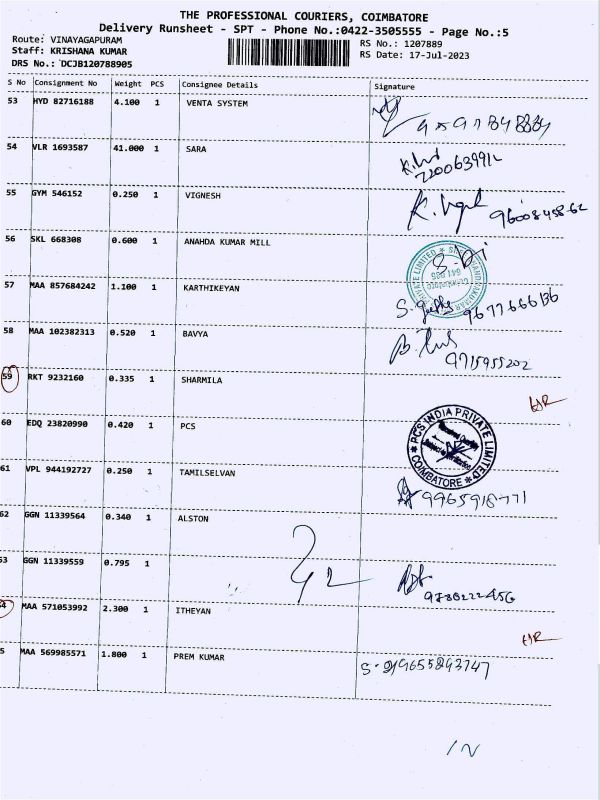 THE PROFESSIONAL COURIERS, COIMBATORE
Delivery Runsheet - SPT - Phone No.:0422-3505555 - Page No.:5
Route: VINAYAGAPURAM
Staff: KRISHANA KUMAR
DRS No.: DCJB120788905
RS No.: 1207889
RS Date: 17-Jul-2023
S No Consignment No Weight PCS Consignee Details Signature
53 HYD 82716188 4.100 1 VENTA SYSTEM
54 VLR 1693587 41.000 1 SARA
7200639912
55 GYM 546152 0.250 1 VIGNESH
9600845862
56 SKL 668308 0.600 1 ANAHDA KUMAR MILL
PRIVATE LIMITED
57 MAA 857684242 1.100 1 KARTHIKEYAN
9677666136
58 MAA 102382313 0.520 1 BAVYA
9715955202
59 RKT 9232160 0.335 1 SHARMILA
60 EDQ 23820990 0.420 1 PCS
PCS INDIA PRIVATE LIMITED
COIMBATORE
61 VPL 944192727 0.250 1 TAMILSELVAN
9965918771
62 GGN 11339564 0.340 1 ALSTON
53 GGN 11339559 0.795 1
4 MAA 571053992 2.300 1 ITHEYAN
5 MAA 569985571 1.800 1 PREM KUMAR
9655893747